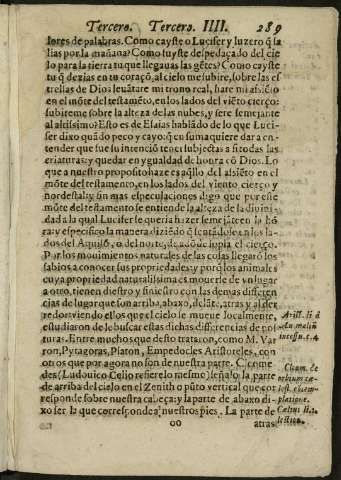 Tercero. Tercero. IIII. 289
lores de palabras. Como cayste o Lucifer y luzero q̃ sa
lias por la mañana? Como fuyste despedaçado del cie
lo para la tierra tu que llegauas las gẽtes? Como cayste
tu q̃ dezias en tu coraçõ, al cielo me subire, sobre las es
trellas de Dios leuãtare mi trono real, sentar me
en el mõte del testamẽto, en los lados del viẽto cierço:
subireme sobre la alteza de las nubes, y sere semejante
al altissimo? Esto es de Esaias hablãdo de lo que Luci-
fer dixo quãdo peco y cayo: q̃ en suma quiere dar a en-
tender que fue su intenciõ tener subjectas a si todas las
criaturas: y quedar en ygualdad de honra cõ Dios. Lo
que a nuestro proposito haze es aq̃llo del assiẽto en el
mõte del testamento, en los lados del viento cierço y
nordestal: y sin mas especulaciones digo que por este
mõte del testamento se entiende la alteza de la diuini-
dad a la qual Lucifer se queria hazer semejãte en la hõ
ra: y especifico la manera diziẽdo q̃ sentãdose en los la-
dos del Aquilõ, o del norte, de adõde sopla el cierço.
Por los mouimientos naturales de las cosas llegarõ los
sabios a conocer sus propriedades: y porq̃ los animales
cuya propriedad naturalissima es mouerse de vn lugar
a otro, tienen diestro y siniestro con las demas differen
cias de lugar que son arriba, abaxo, delãte, atras y al der
redor: viendo ellos que el cielo se mueue localmente,
estudiaron de le buscar estas dichas differencias de pos
turas. Entre muchos que desto trataron, como M. Var
ron, Pytagoras, Platon, Empedocles Aristoteles, con
otros que por agora no son de nuestra parte. Cleome
des (Ludouico Celio refiere lo mesmo) señalo la parte
de arriba del cielo en el Zenith o pũto vertical que cor
responde sobre nuestra cabeça: y la parte de abaxo di-
xo ser la que corresponde a nuestros pies. La parte de
oo atras
Arist. li. d
incessu. c. 4
Cleom. de
Celius li. 1.